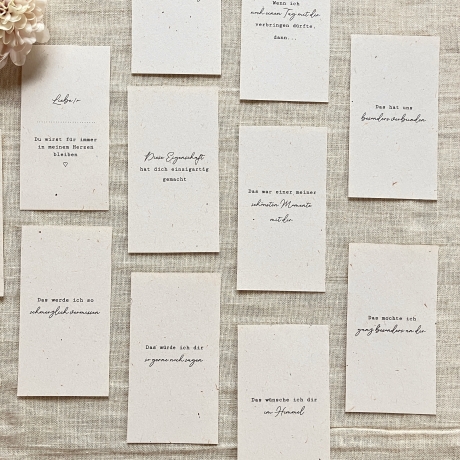 Wenn ich
noch einen Tag mit dir
verbringen dürfte,
dann...
Liebe/r
Du wirst für immer
in meinem Herzen
bleiben
Diese Eigenschaft
hat dich einzigartig
gemacht
Das war einer meiner
schönsten Momente
mit dir
Das hat uns
besonders verbunden
Das werde ich so
schmerzlich vermissen
Das würde ich dir
so gerne noch sagen
Das wünsche ich dir
im Himmel
Das mochte ich
ganz besonders an dir